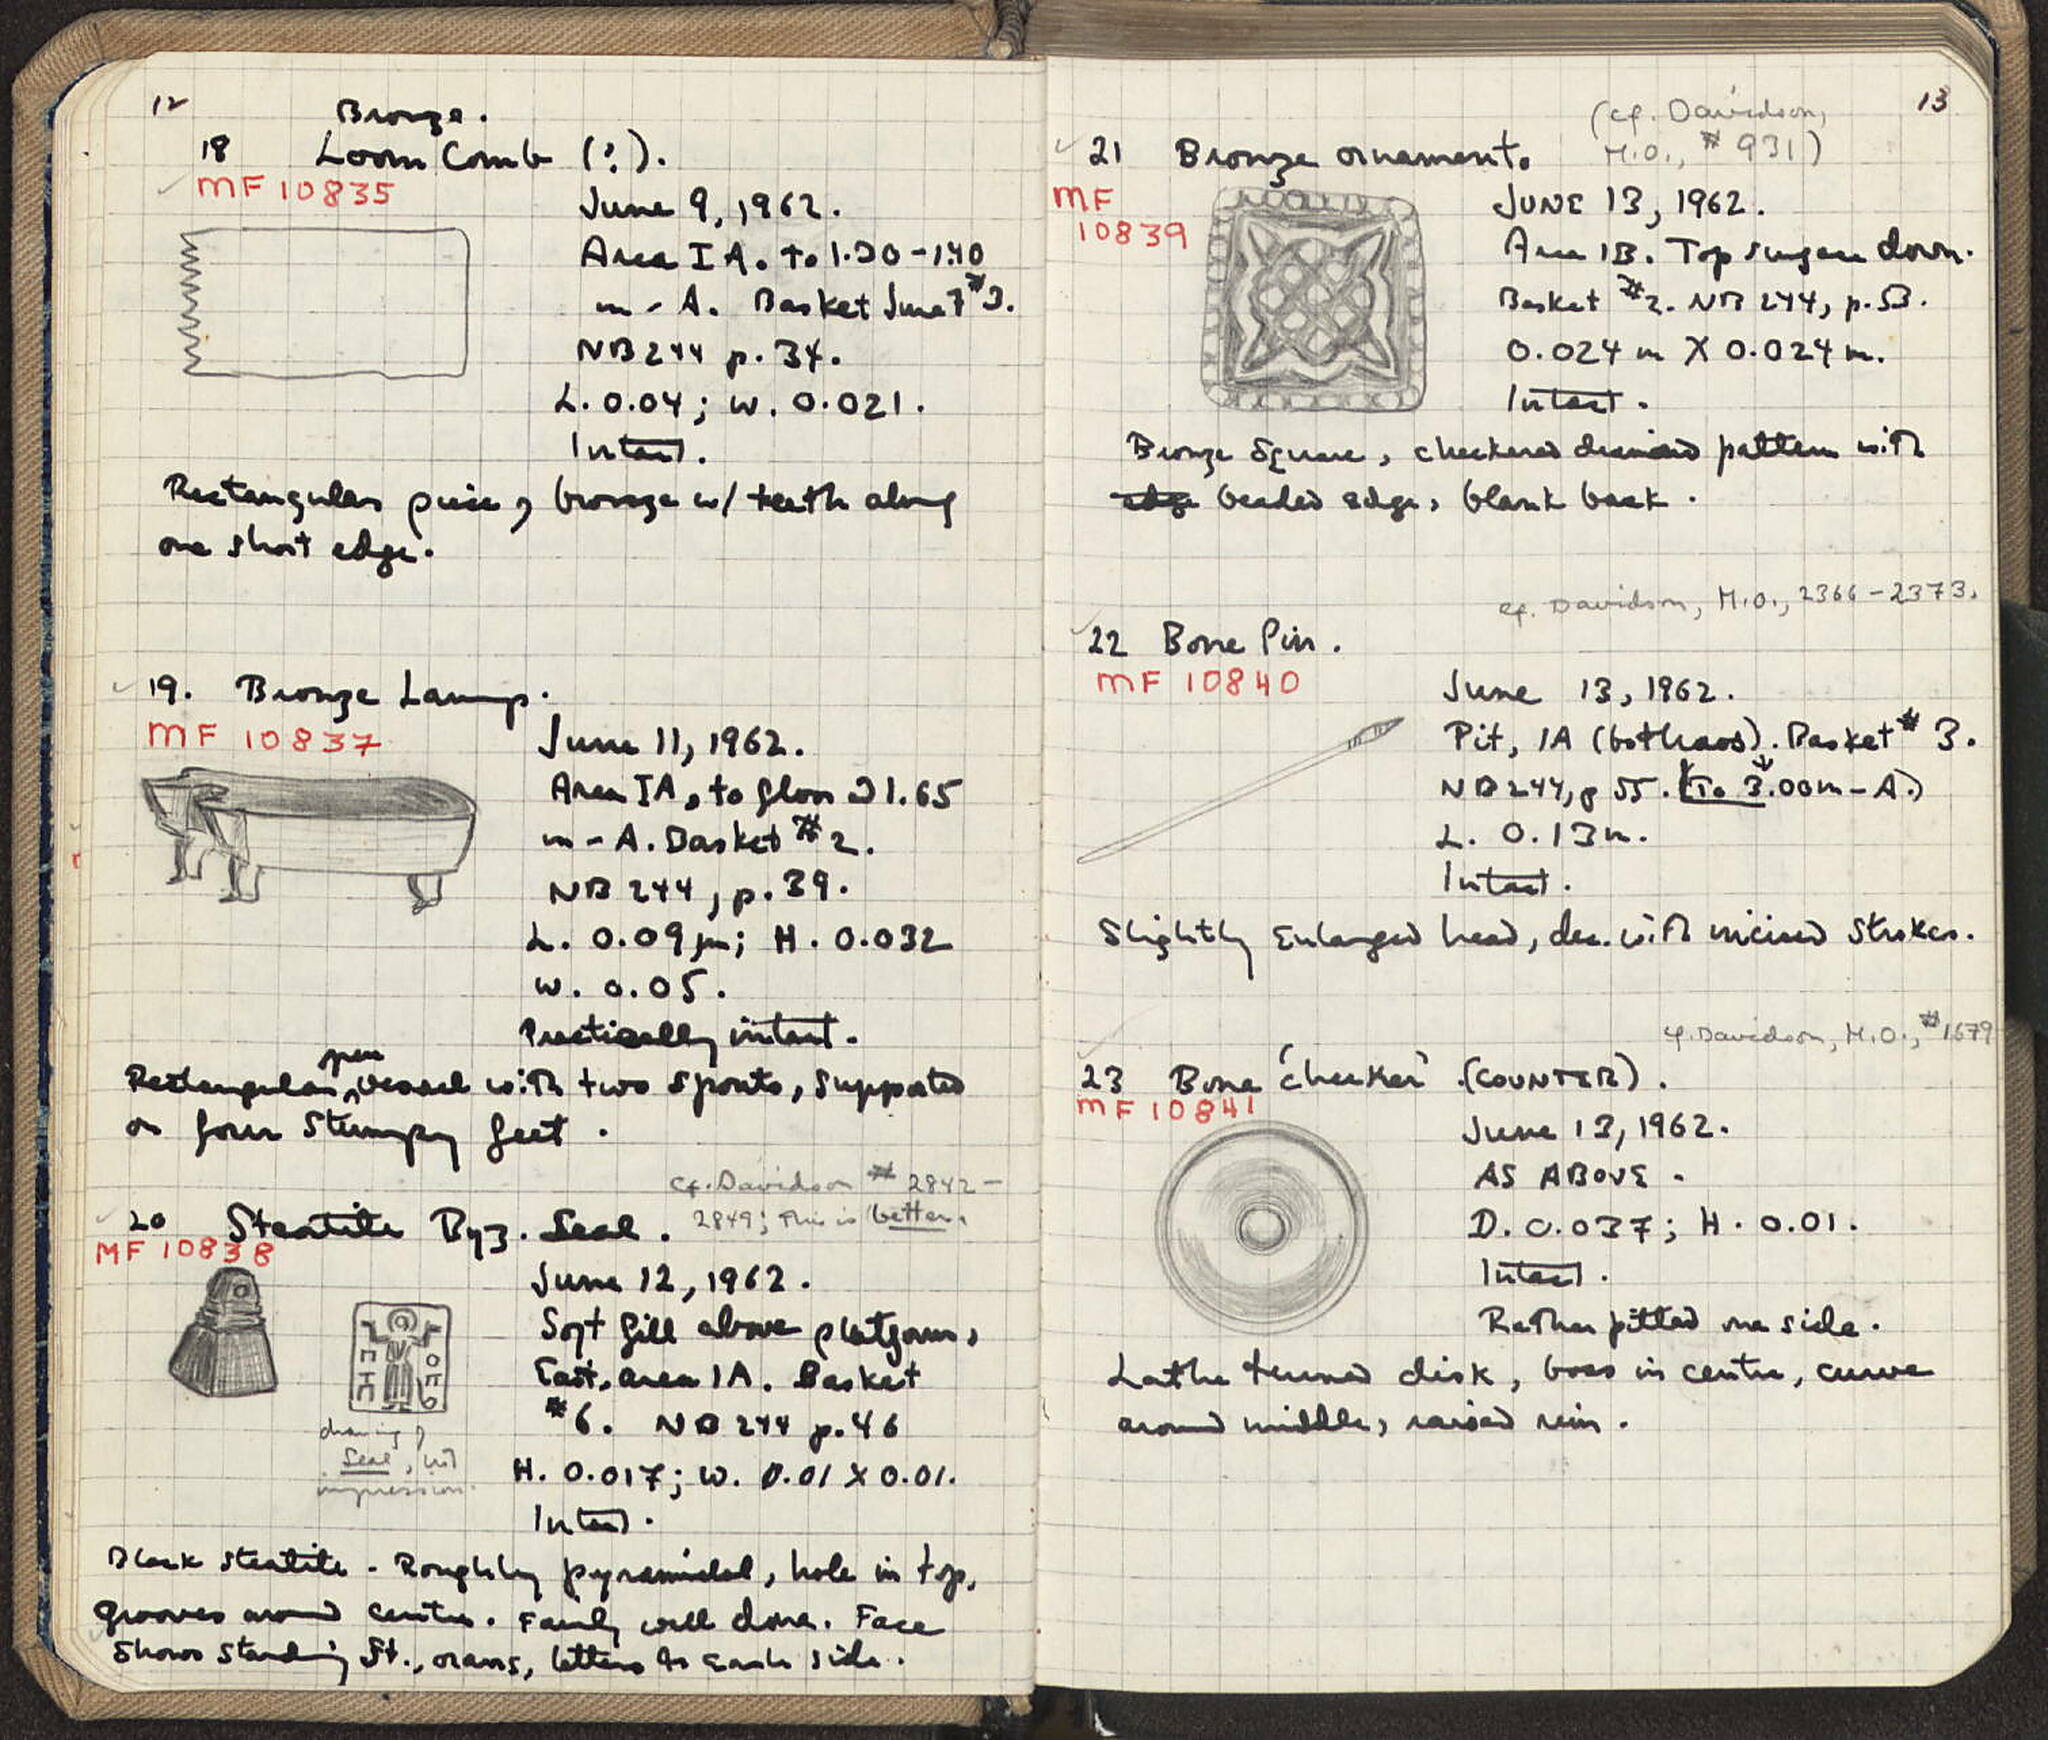 12
Bronze.
18 Loom Comb (?).
MF 10835
June 9, 1962.
Area IA. to 1.30-1.40
m - A. Basket June 7 #3.
NB 244 p. 34.
L. 0.04; W. 0.021.
Intact.
Rectangular piece, bronze w/ teeth along
one short edge.
19. Bronze Lamp.
MF 10837
June 11, 1962.
Area IA, to floor 1.65
m - A. Basket #2.
NB 244, p. 39.
L. 0.09 m; H. 0.032
W. 0.05.
Practically intact.
open
Rectangular, vessel with two spouts, supported
on four stumpy feet.
cf. Davidson # 2842-
2849; This is better.
20 Steatite Byz. Seal.
MF 10838
June 12, 1962.
Soft fill above platform,
East, area 1A. Basket
#6. NB 244 p. 46
drawing of
seal, not
impression.
H. 0.017; W. 0.01 X 0.01.
Intact.
Black steatite. Roughly pyramidal, hole in top,
grooves around centre. Fairly well done. Face
shows standing St., orans, letters to each side.
13
(cf. Davidson,
M.O., # 931)
21 Bronze ornament.
MF
10839
JUNE 13, 1962.
Area 1B. Top surface down.
Basket #2. NB 244, p. 53.
0.024 m X 0.024 m.
Intact.
Bronze square, checkered diamond pattern with
edge beaded edge, blank back.
cf. Davidson, M.O., 2366-2373.
22 Bone Pin.
MF 10840
June 13, 1962.
Pit, 1A (bothros). Basket # 3.
NB 244, p 55. (To 3.00m - A.)
L. 0.13 m.
Intact.
Slightly enlarged head, dec. with incised strokes.
cf. Davidson, M.O., #1679
23 Bone 'checker' (COUNTER).
MF 10841
June 13, 1962.
AS ABOVE.
D. 0.037; H. 0.01.
Intact.
Rather pitted one side.
Lathe turned disk, boss in centre, curve
around middle, raised rim.